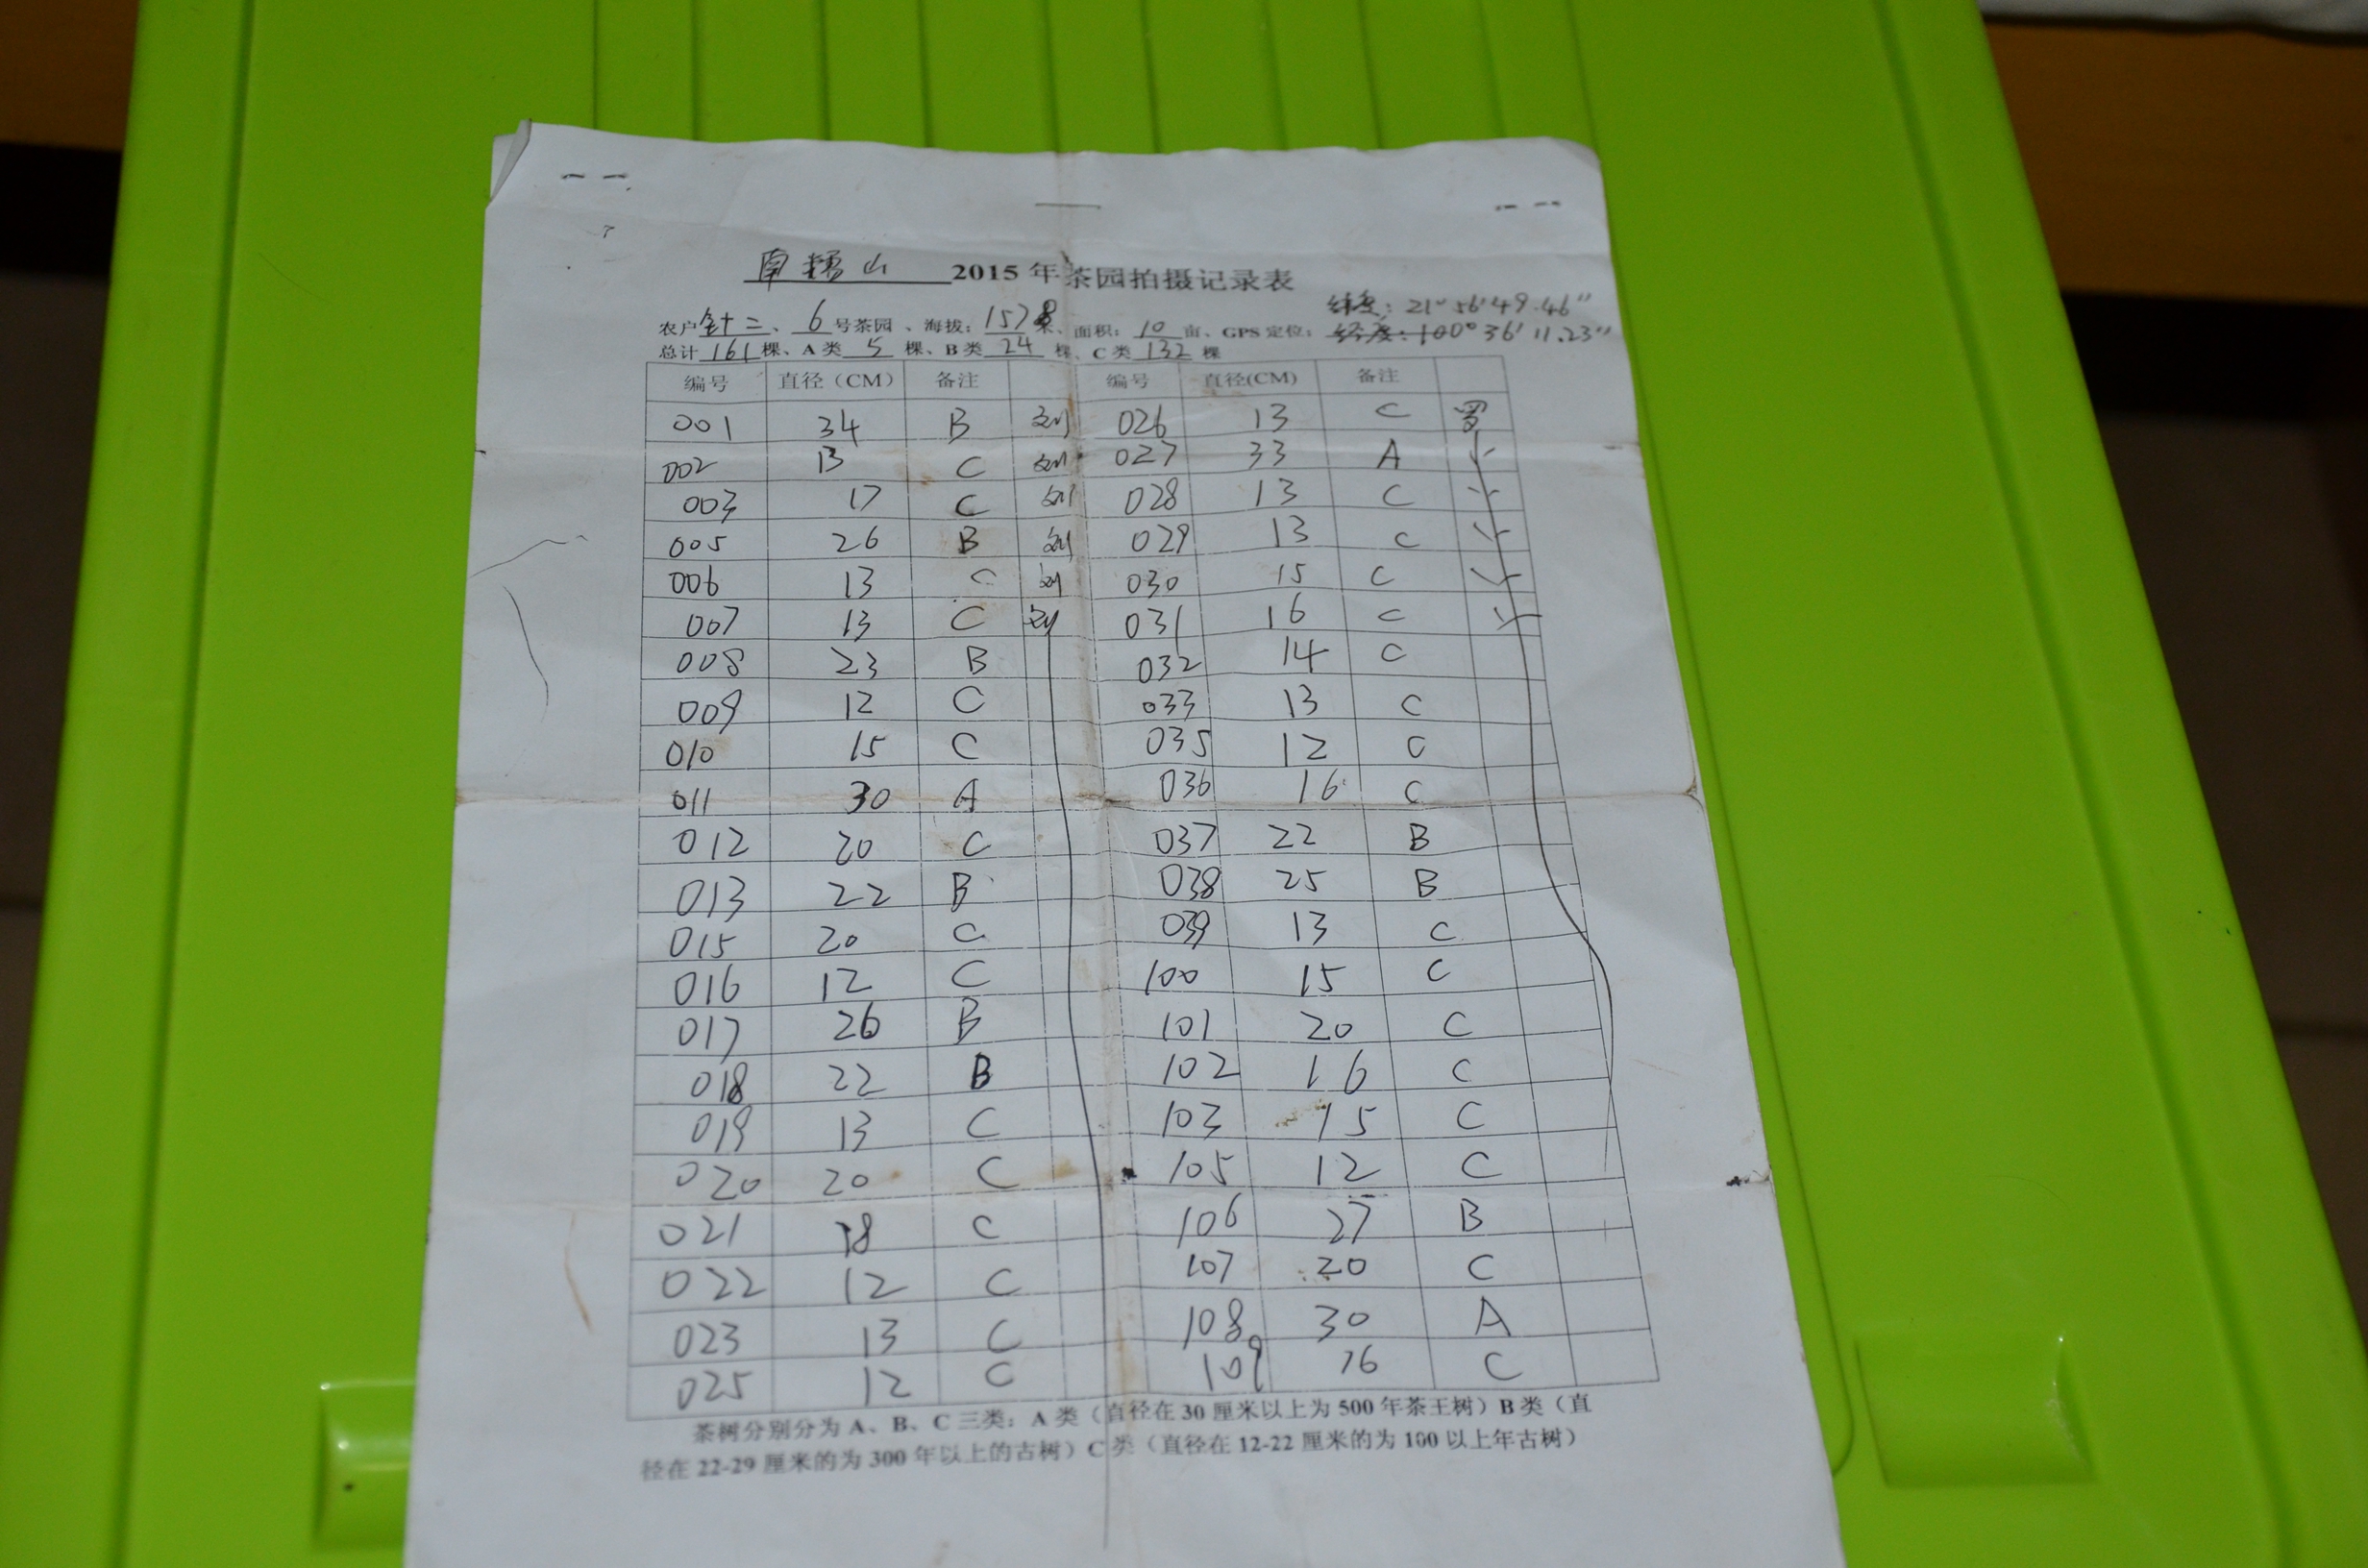 南糯山 2015 年茶园拍摄记录表
纬度: 21°56'49.46"
农户 二、6 号茶园、海拔: 1578 米、面积: 10 亩、GPS 定位: 经度: 100°36'11.23"
总计 161 棵、A 类 5 棵、B 类 24 棵、C 类 132 棵
编号 直径（CM） 备注 编号 直径(CM) 备注
001 34 B 刘 026 13 C 罗
002 13 C 刘 027 33 A
003 17 C 刘 028 13 C
005 26 B 刘 029 13 C
006 13 C 刘 030 15 C
007 13 C 刘 031 16 C
008 23 B 032 14 C
009 12 C 033 13 C
010 15 C 035 12 C
011 30 A 036 16 C
012 20 C 037 22 B
013 22 B 038 25 B
015 20 C 039 13 C
016 12 C 100 15 C
017 26 B 101 20 C
018 22 B 102 16 C
019 13 C 103 15 C
020 20 C 105 12 C
021 18 C 106 27 B
022 12 C 107 20 C
023 13 C 108 30 A
025 12 C 109 16 C
茶树分别分为 A、B、C 三类: A 类（直径在 30 厘米以上为 500 年茶王树）B 类（直
径在 22-29 厘米的为 300 年以上的古树）C 类（直径在 12-22 厘米的为 100 以上年古树）